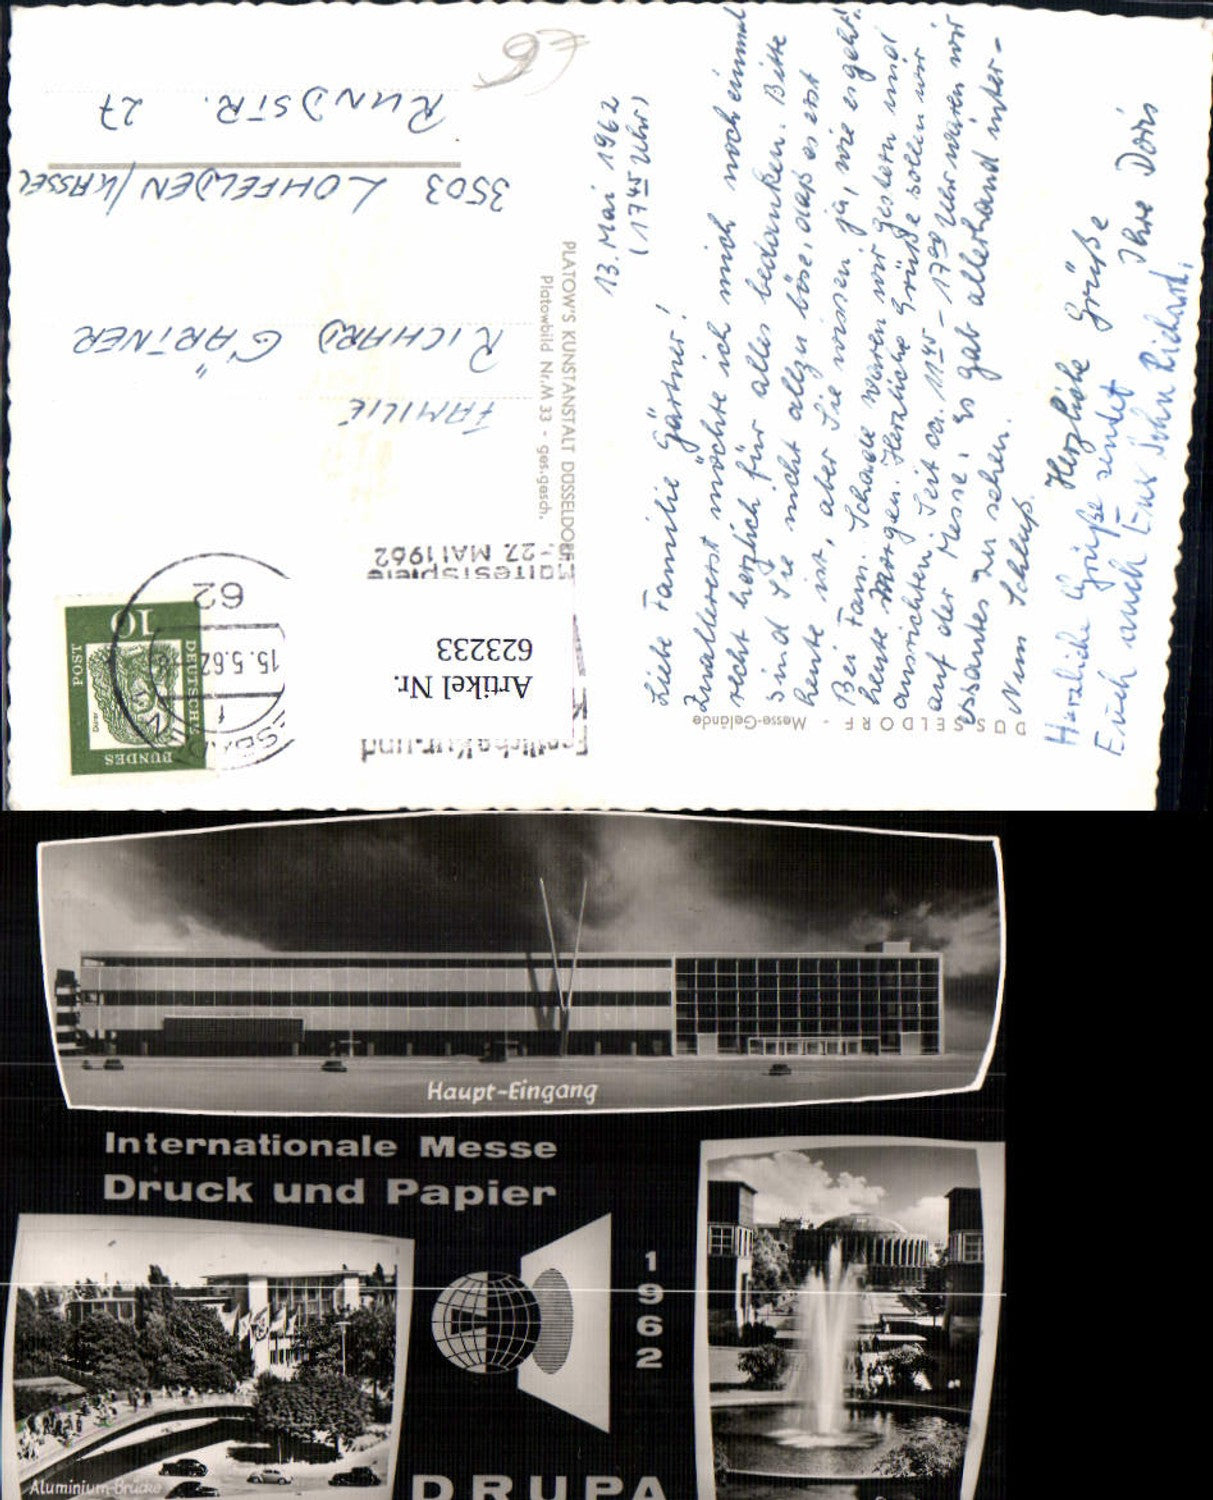 €6
13. Mai 1962
(17 45 Uhr)
Liebe Familie Gärtner!
Zuallererst möchte ich mich noch einmal
recht herzlich für alles bedanken. Bitte
sind Sie nicht allzu böse, daß es erst
heute ist, aber Sie wissen ja, wie es geht!
Bei Fam. Schade waren wir gestern und
heute Morgen. Herzliche Grüße sollen wir
ausrichten. Seit ca. 11 45 - 17 00 Uhr waren wir
auf der Messe. Es gab allerhand inter-
essantes zu sehen.
Nun Schluß.
Herzliche Grüße
Ihre Doris
Herzliche Grüße sendet
Euch auch Euer Sohn Richard.
DÜSSELDORF - Messe-Gelände
PLATOW'S KUNSTANSTALT DÜSSELDORF
Platowbild Nr. M 33 - ges. gesch.
BUNDES
DEUTSCHE
POST
10
Dürer
15. 5. 62
62
Festliche Kur und
- 27. MAI 1962
Artikel Nr.
623233
FAMILIE
RICHARD GÄRTNER
3503 LOHFELDEN/KASSEL
RUNDSTR. 27
Haupt-Eingang
Internationale Messe
Druck und Papier
1962
DRUPA
Aluminium-Brücke